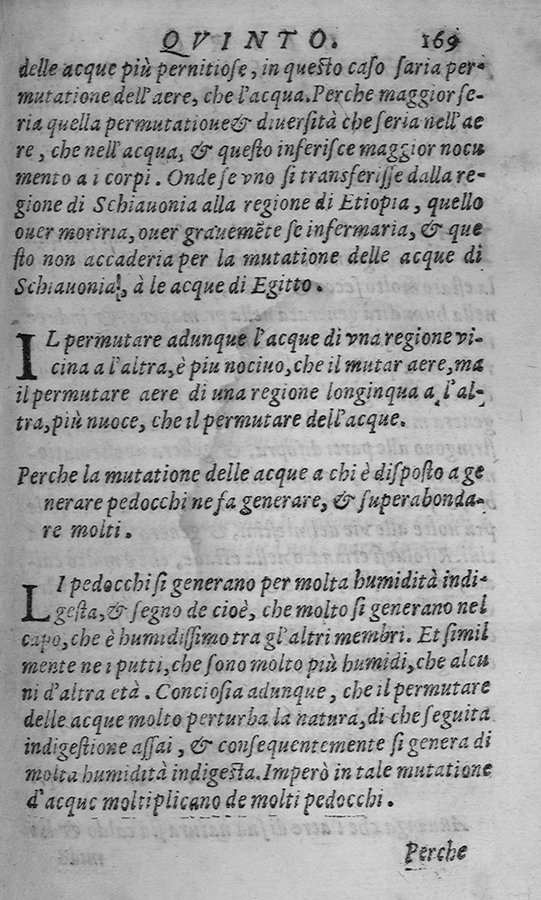 QVINTO. 169
delle acque più pernitiose, in questo caso saria per-
mutatione dell'aere, che l'acqua. Perche maggior se-
ria quella permutatioue & diuersità che seria nell'ae
re, che nell'acqua, & questo inferisce maggior nocu
mento a i corpi. Onde se vno si transferisse dalla re-
gione di Schiauonia alla regione di Etiopia, quello
ouer moriria, ouer grauemēte se infermaria, & que
sto non accaderia per la mutatione delle acque di
Schiauonia, à le acque di Egitto.
IL permutare adunque l'acque di vna regione vi-
cina a l'altra, è piu nociuo, che il mutar aere, ma
il permutare aere di una regione longinqua a l'al-
tra, più nuoce, che il permutare dell'acque.
Perche la mutatione delle acque a chi è disposto a ge
nerare pedocchi ne fa generare, & superabonda-
re molti.
LI pedocchi si generano per molta humidità indi-
gesta, & segno de cioè, che molto si generano nel
capo, che è humidissimo tra gl'altri membri. Et simil
mente ne i putti, che sono molto più humidi, che alcu
ni d'altra età. Conciosia adunque, che il permutare
delle acque molto perturba la natura, di che seguita
indigestione assai, & consequentemente si genera di
molta humidità indigesta. Imperò in tale mutatione
d'acque moltiplicano de molti pedocchi.
Perche